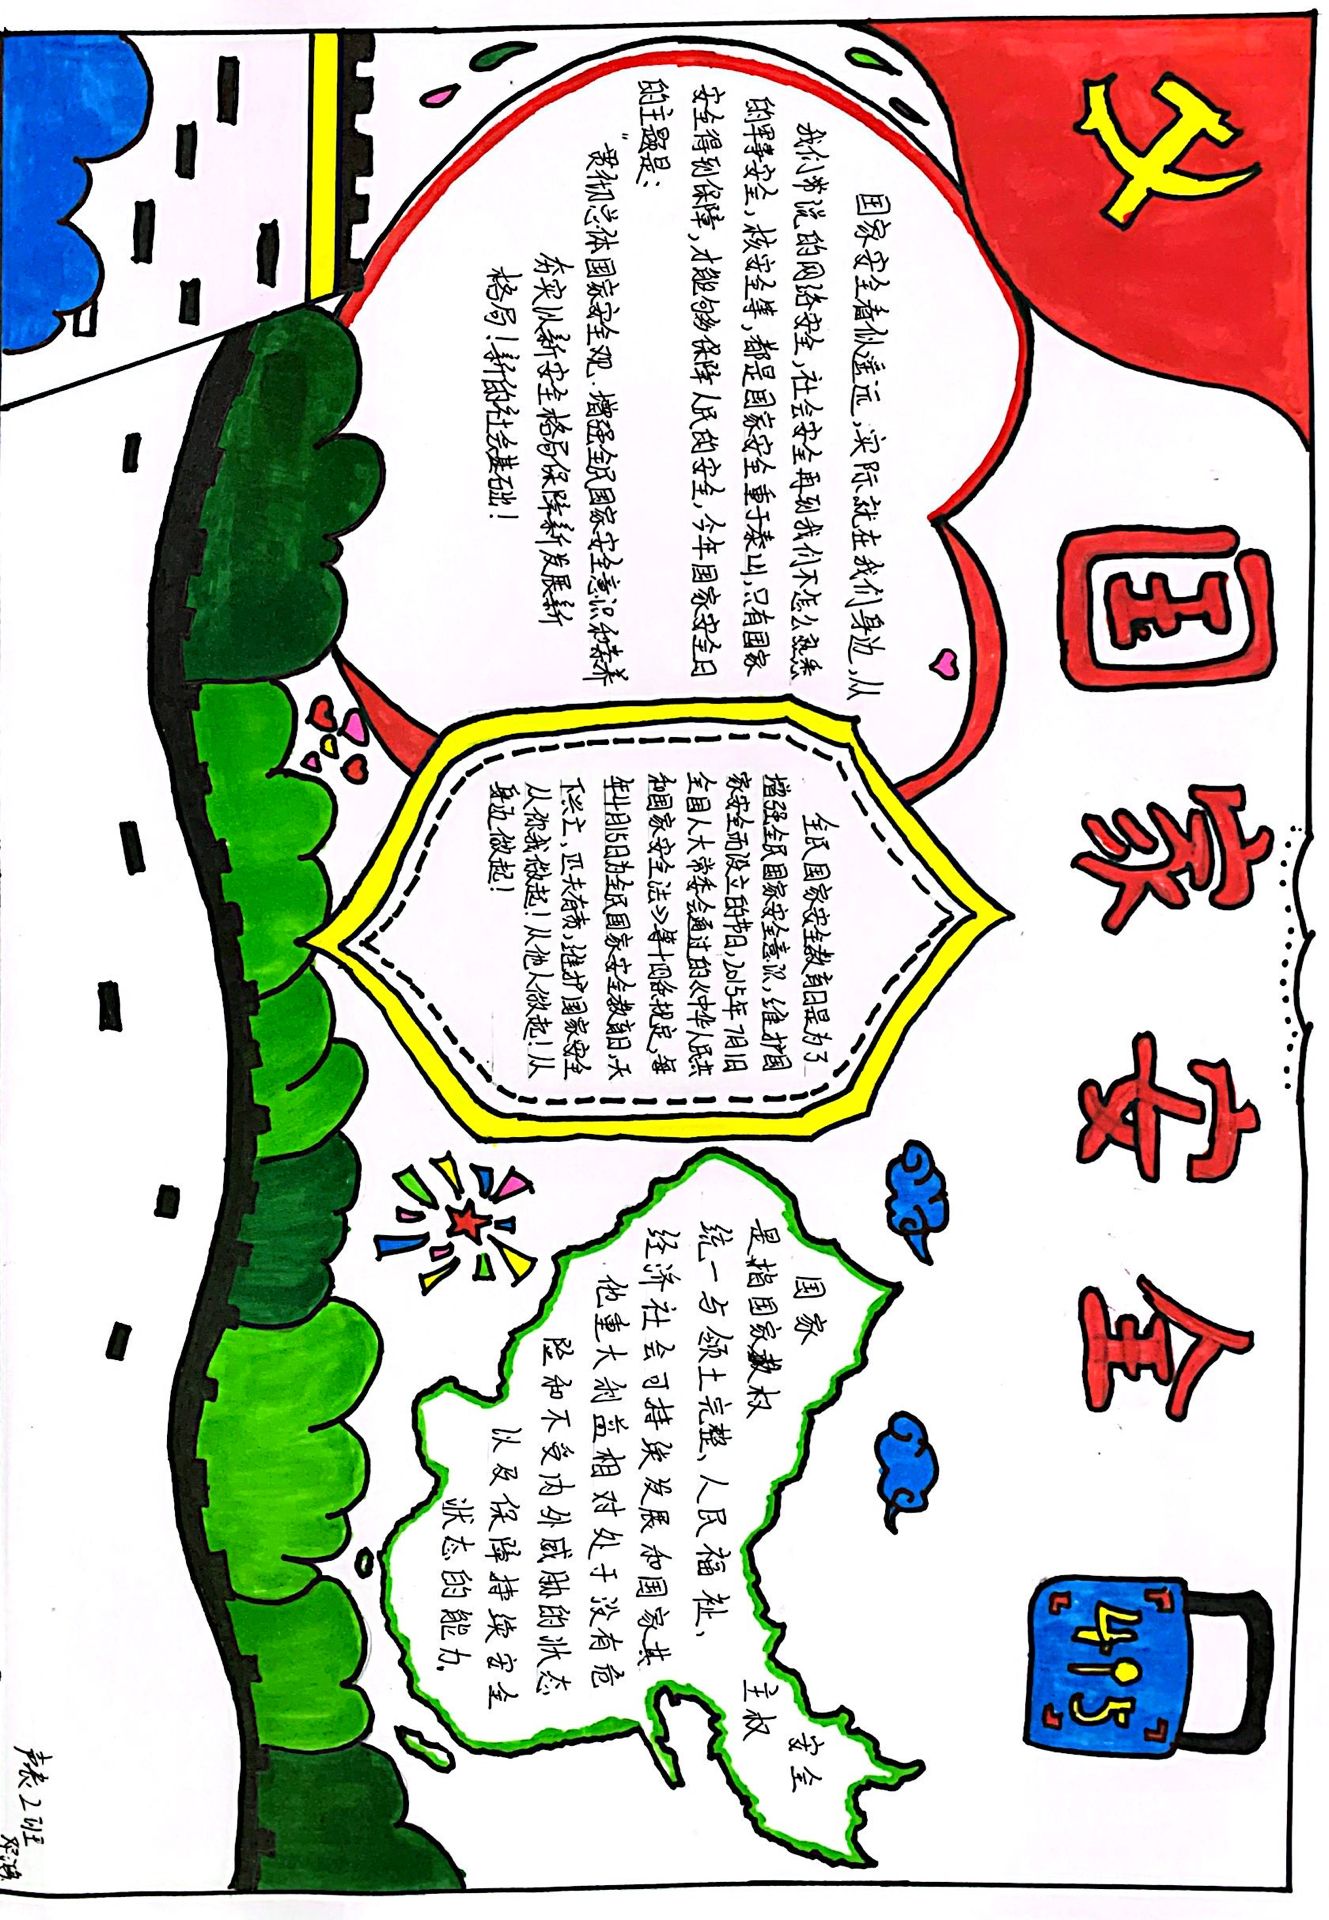 国家安全
415
国家安全看似遥远,实际就在我们身边,从
我们常说的网络安全,社会安全再到我们不怎么熟悉
的军事安全,核安全等,都是国家安全重于泰山,只有国家
安全得到保障,才能够保障人民的安全,今年国家安全日
的主题是:
“贯彻总体国家安全观、增强全民国家安全意识和素养
夯实以新安全格局保障新发展新
格局!新的社会基础!
全民国家安全教育日是为了
增强全民国家安全意识,维护国
家安全而设立的节日,2015年7月1日
全国人大常委会通过的《中华人民共
和国家安全法》第十四条规定,每
年4月15日为全民国家安全教育日,天
下兴亡,匹夫有责,维护国家安全
从你我做起!从他人做起!从
身边做起!
国家 安全
是指国家政权 主权
统一与领土完整、人民福祉、
经济社会可持续发展和国家其
他重大利益相对处于没有危
险和不受内外威胁的状态
以及保障持续安全
状态的能力.
2班